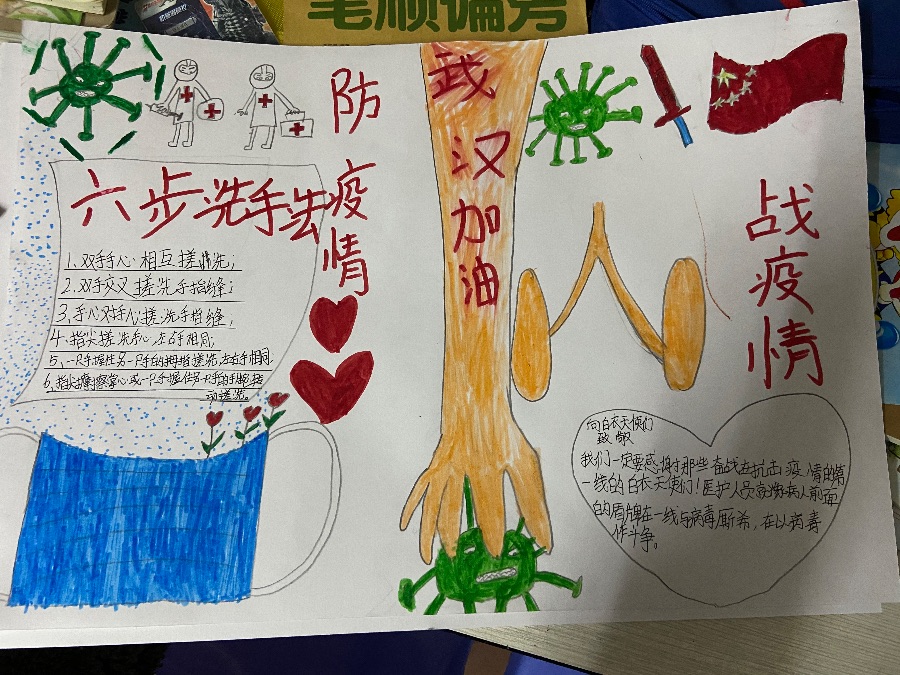 笔顺偏旁
防疫情
武汉加油
战疫情
六步洗手法
1、双手手心相互搓洗;
2、双手交叉搓洗手指缝;
3、手心对手心搓洗手指缝,
4、指尖搓洗手心,左右手相同;
5、一只手握住另一只手的拇指搓洗,左右手相同,
6、指尖摩擦掌心或一只手握住另一只手的手腕转
动搓洗。
向白衣天使们
致敬
我们一定要感谢那些奋战在抗击疫情的第
一线的白衣天使们!医护人员就像病人前面
的盾牌在一线与病毒厮
作斗争。